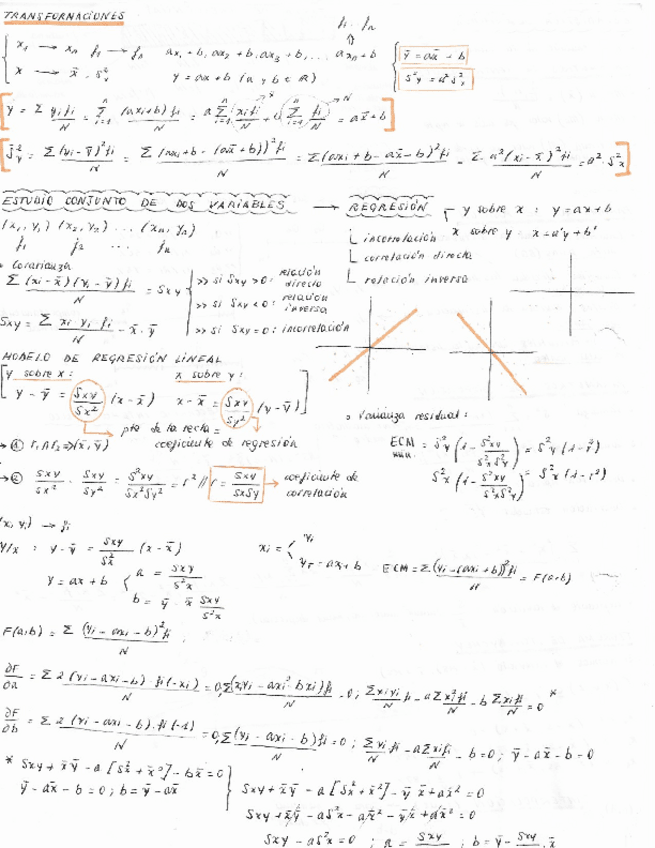 TRANSFORMACIONES
fi. fn
x1 → xn f1 → fn ax1 + b, ax2 + b, ax3 + b, ... axn + b
x → x̄ . S²x y = ax + b (a y b ∈ ℝ)
ȳ = ax̄ + b
S²y = a² S²x
ȳ = Σ yi fi / N = Σ (axi + b) fi / N = a Σ xi fi / N + b Σ fi / N = a x̄ + b
S²y = Σ (yi - ȳ)² fi / N = Σ (axi + b - (ax̄ + b))² fi / N = Σ (axi + b - ax̄ - b)² fi / N = Σ a² (xi - x̄)² fi / N = a² · S²x
ESTUDIO CONJUNTO DE DOS VARIABLES → REGRESIÓN
y sobre x : y = ax + b
x sobre y : x = a'y + b'
(x1, y1) (x2, y2) ... (xn, yn)
f1 f2 ... fn
incorrelación
correlación directa
relación inversa
Covarianza
Σ (xi - x̄) (yi - ȳ) fi / N = Sxy
>> si Sxy > 0 : relación directa
>> si Sxy < 0 : relación inversa
>> si Sxy = 0 : incorrelación
Sxy = Σ xi yi fi / N - x̄ · ȳ
MODELO DE REGRESIÓN LINEAL
y sobre x : x sobre y :
y - ȳ = Sxy / Sx² (x - x̄) x - x̄ = Sxy / Sy² (y - ȳ)
pte de la recta =
coeficiente de regresión
① r1 ∩ r2 ⇒ (x̄, ȳ)
② Sxy / Sx² · Sxy / Sy² = S²xy / Sx² Sy² = r² // r = Sxy / SxSy → coeficiente de correlación
Varianza residual :
ECM = S²y (1 - S²xy / S²x S²y) = S²y (1 - r²)
S²x (1 - S²xy / S²x S²y) = S²x (1 - r²)
(xi, yi) → fi
Y/x : y - ȳ = Sxy / S²x (x - x̄)
y = ax + b
a = Sxy / S²x
b = ȳ - x̄ Sxy / S²x
xi = yi
yT = axi + b
ECM = Σ (yi - (axi + b))² fi / N = F(a,b)
F(a,b) = Σ (yi - axi - b)² fi / N
∂F/∂a = Σ 2 (yi - axi - b) · fi (-xi) / N = 0; Σ (xiyi - axi² - bxi) fi / N = 0; Σ xi yi fi / N - a Σ xi² fi / N - b Σ xi fi / N = 0 *
∂F/∂b = Σ 2 (yi - axi - b) · fi (-1) / N = 0; Σ (yi - axi - b) fi / N = 0; Σ yi fi / N - a Σ xi fi / N - b = 0; ȳ - ax̄ - b = 0
* Sxy + x̄ȳ - a [S²x + x̄²] - bx̄ = 0
ȳ - ax̄ - b = 0; b = ȳ - ax̄
Sxy + x̄ȳ - a [S²x + x̄²] - ȳx̄ + ax̄² = 0
Sxy + x̄ȳ - aS²x - ax̄² - ȳx̄ + ax̄² = 0
Sxy - aS²x = 0 ; a = Sxy ; b = ȳ - Sxy · x̄